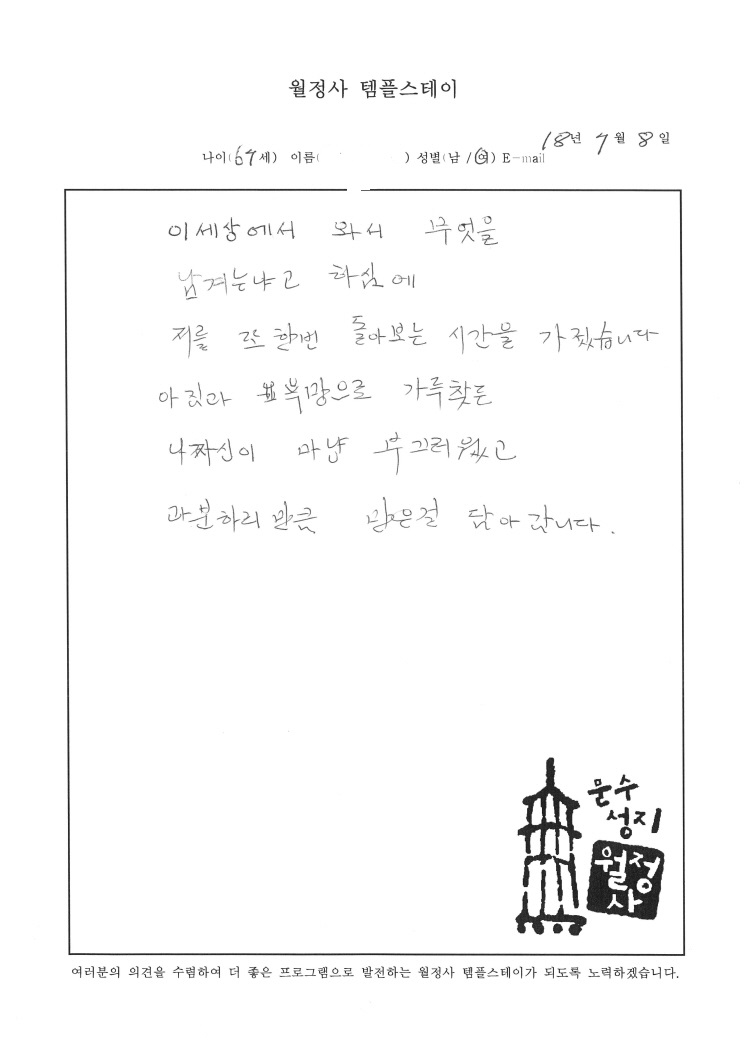 월정사 템플스테이
18년 7월 8일
나이(67세) 이름( ) 성별(남 / 여) E-mail
이세상에서 와서 무엇을
남겨는냐고 하심에
저를 또 한번 돌아보는 시간을 가졌습니다
아집과 욕망으로 가득찾든
나짜신이 마냥 부끄러웠고
과분하리 만큼 많은걸 담아 갑니다.
문수
성지
월정
사
여러분의 의견을 수렴하여 더 좋은 프로그램으로 발전하는 월정사 템플스테이가 되도록 노력하겠습니다.